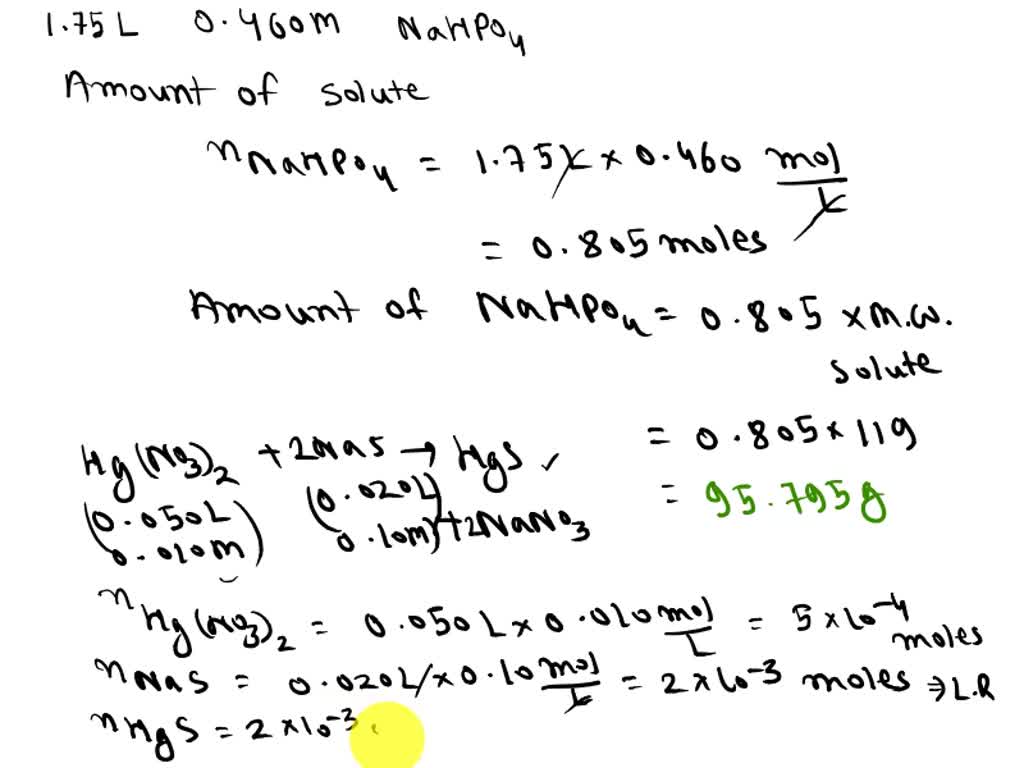 1.75 L 0.460 M NaHPO4
Amount of solute
nNaHPO4 = 1.75 L × 0.460 mol/L
= 0.805 moles
Amount of NaHPO4 = 0.805 × M.W. solute
= 0.805 × 119
= 95.795g
Hg(NO3)2 + 2NaS → HgS ✓
+ 2NaNO3
(0.050L 0.010M) (0.020L 0.10M)
nHg(NO3)2 = 0.050 L × 0.010 mol/L = 5 × 10^-4 moles
nNaS = 0.020 L × 0.10 mol/L = 2 × 10^-3 moles ⇒ L.R
nHgS = 2 × 10^-3 .